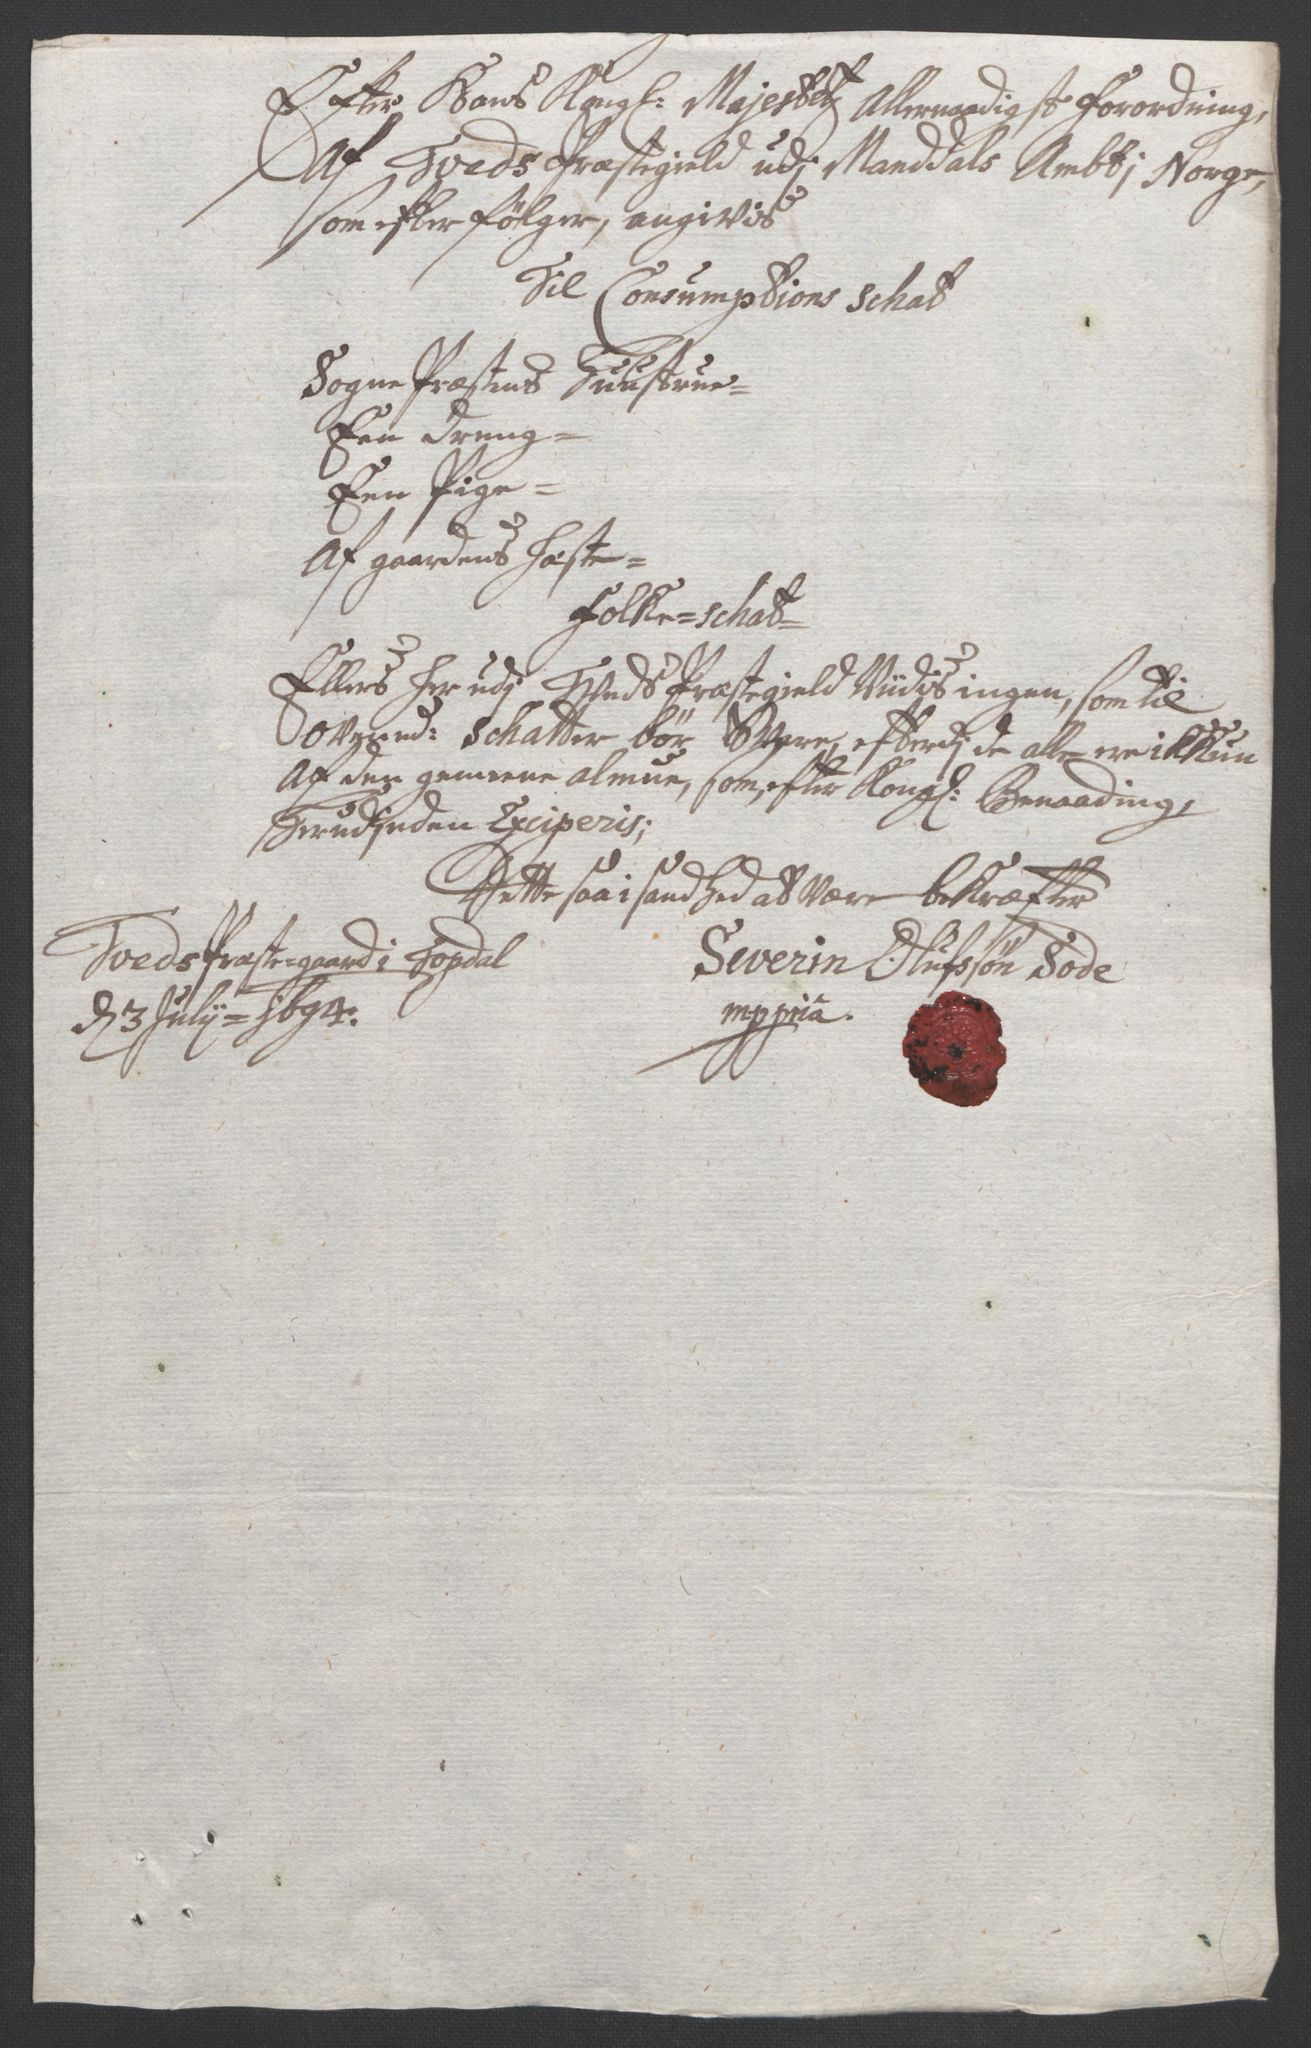 Efter Hans Kongl: Majestetz Allernaadigste Forordning,
Af Tveds Præstegield udj Manddals Ambt j Norge,
som efter følger, angivis
Til Consumptions schat
Sogne Præstens Huustrue=
Een dreng=
Een Pige=
Af gaardens hæste=
Folke=schat=
Ellers her udj Tveds Præstegield Viidis ingen, som til
ovennd: schatter bør Svare, efterdj de alle ere ikkun
Af den gemeene almue, som, efter Kongl: Benaading,
herudjnden Exciperis;
Dette saa i sandhed at være bekræfter
Tveds Præste=gaard i Topdal
d 3 Julij= 1694.
Severin Olufssøn Sode
mppria.